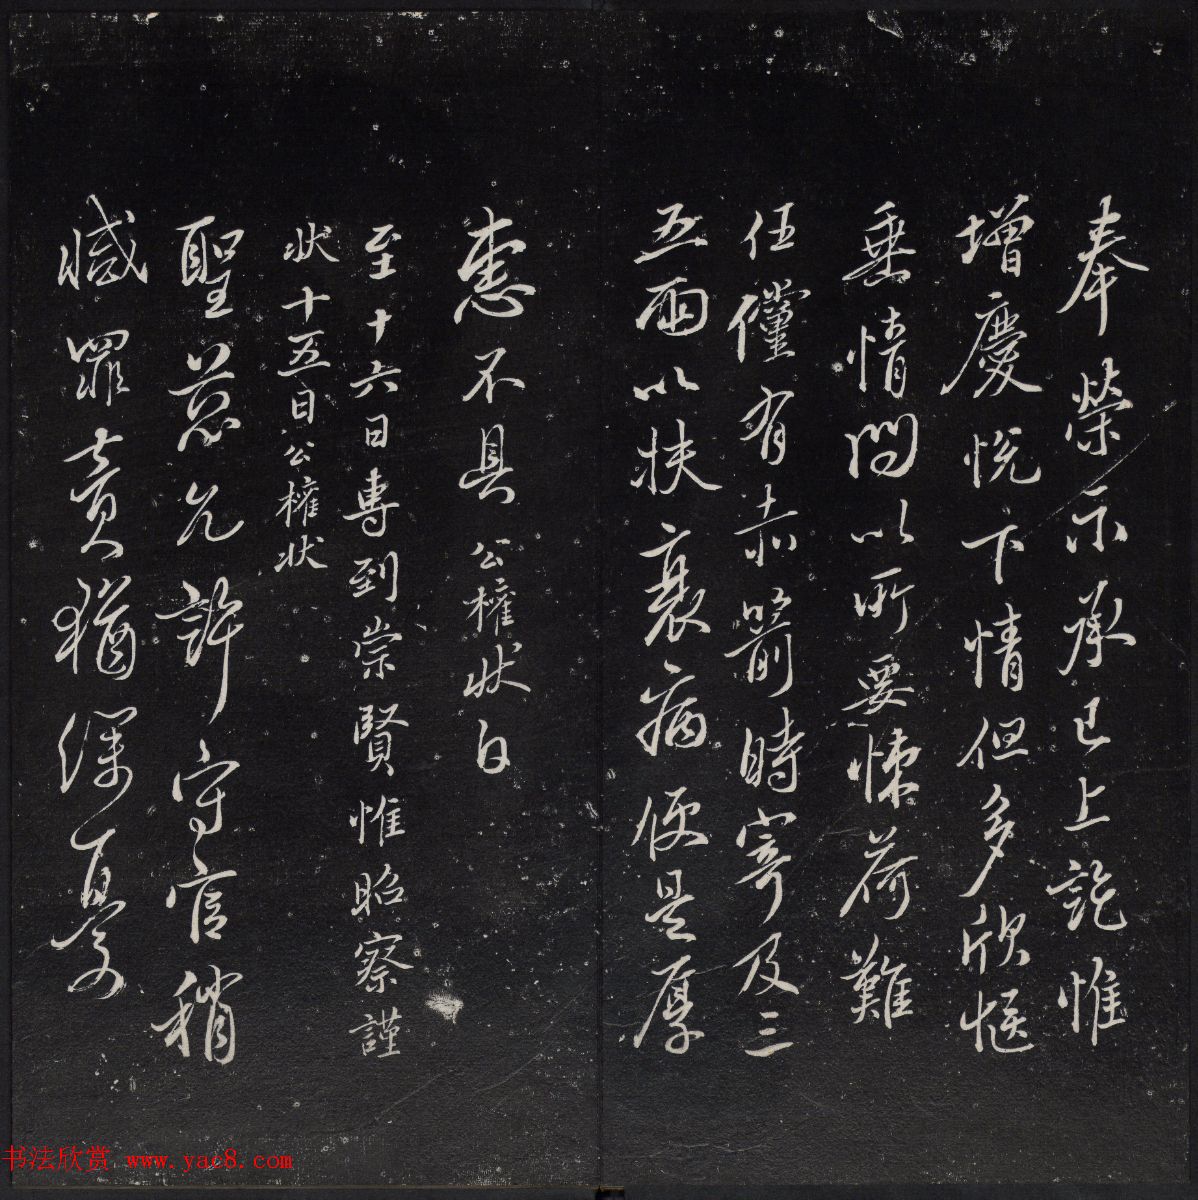 奉榮示承已上訖惟
增慶悅下情但多欣愜
垂情問以所要悚荷難
任儻有赤箭時寄及三
五兩以扶衰病便是厚
惠不具公權狀白
至十六日專到崇賢惟昭察謹
狀十五日公權狀
聖慈允許守官稍
減罪責猶深憂
书法欣赏 www.yac8.com